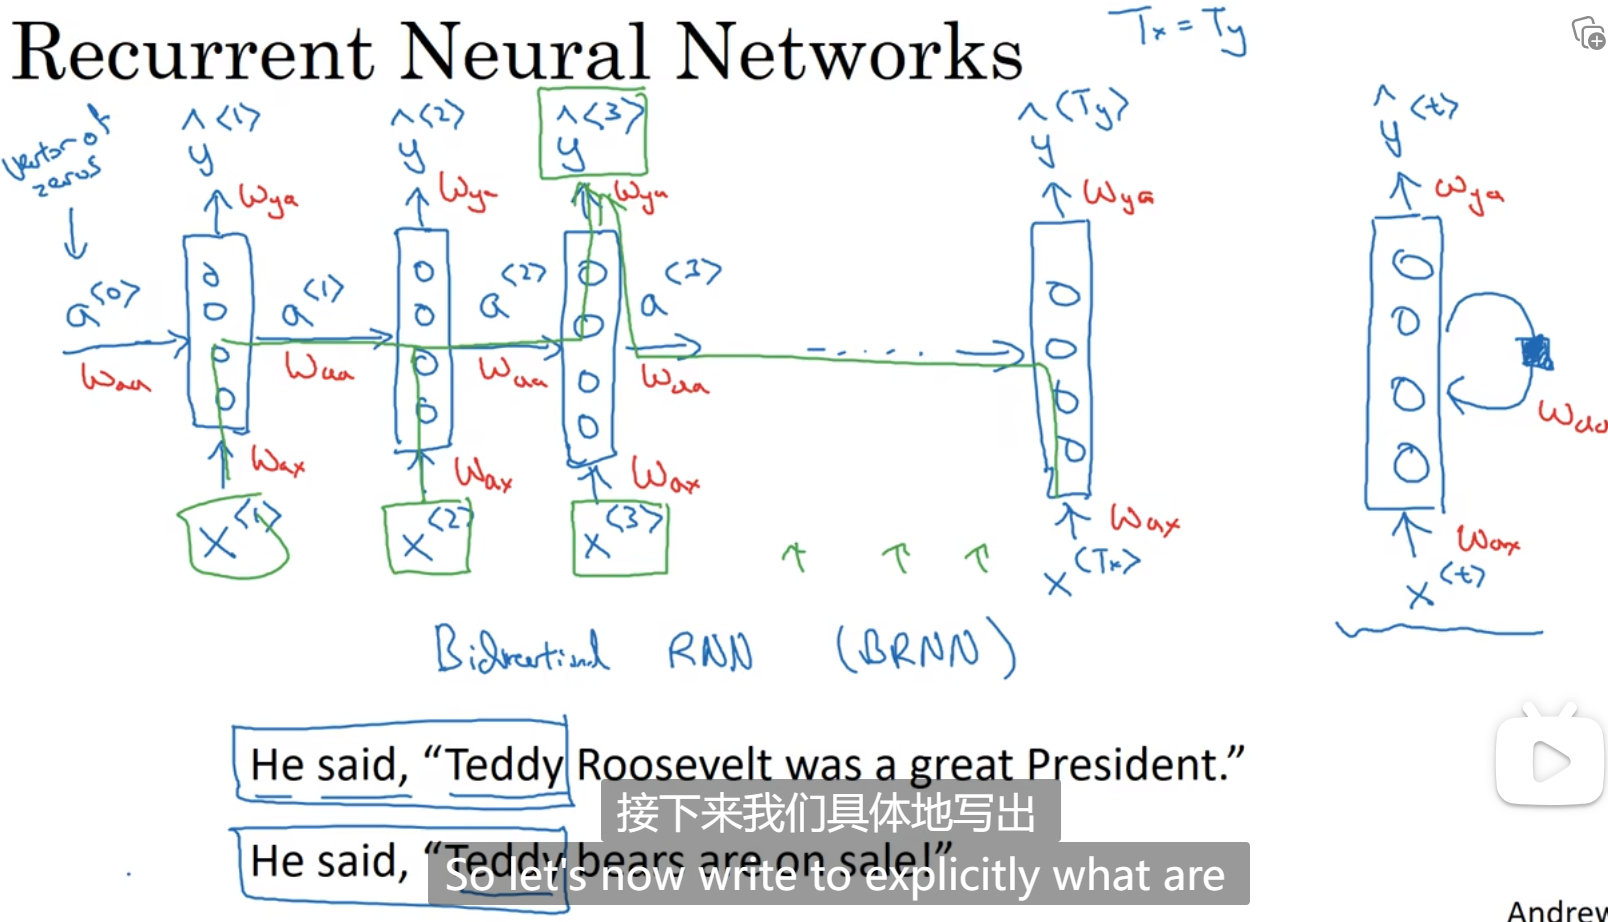 Recurrent Neural Networks
Tx = Ty
vector of zeros
ŷ<1> ŷ<2> ŷ<3> ŷ<Ty> ŷ<t>
Wya Wya Wya Wya Wya
a<0> a<1> a<2> a<3>
Waa Waa Waa Waa Waa
Wax Wax Wax Wax Wax
x<1> x<2> x<3> x<Tx> x<t>
Bidirectional RNN (BRNN)
He said, “Teddy Roosevelt was a great President.”
接下来我们具体地写出
He said, “Teddy bears are on sale!”
So let's now write to explicitly what are
Andrew